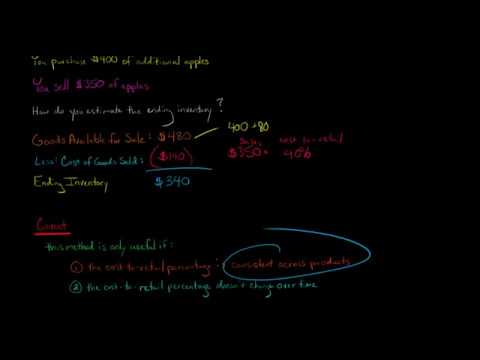 You purchase $400 of additional apples
You sell $350 of apples
How do you estimate the ending inventory?
400 + 80
Goods Available for Sale: $480
Sales cost-to-retail
Less: Cost of Goods Sold: ($140) $350 × 40%
Ending Inventory $340
Caveat
this method is only useful if:
① the cost-to-retail percentage is consistent across products
② the cost-to-retail percentage doesn't change over time